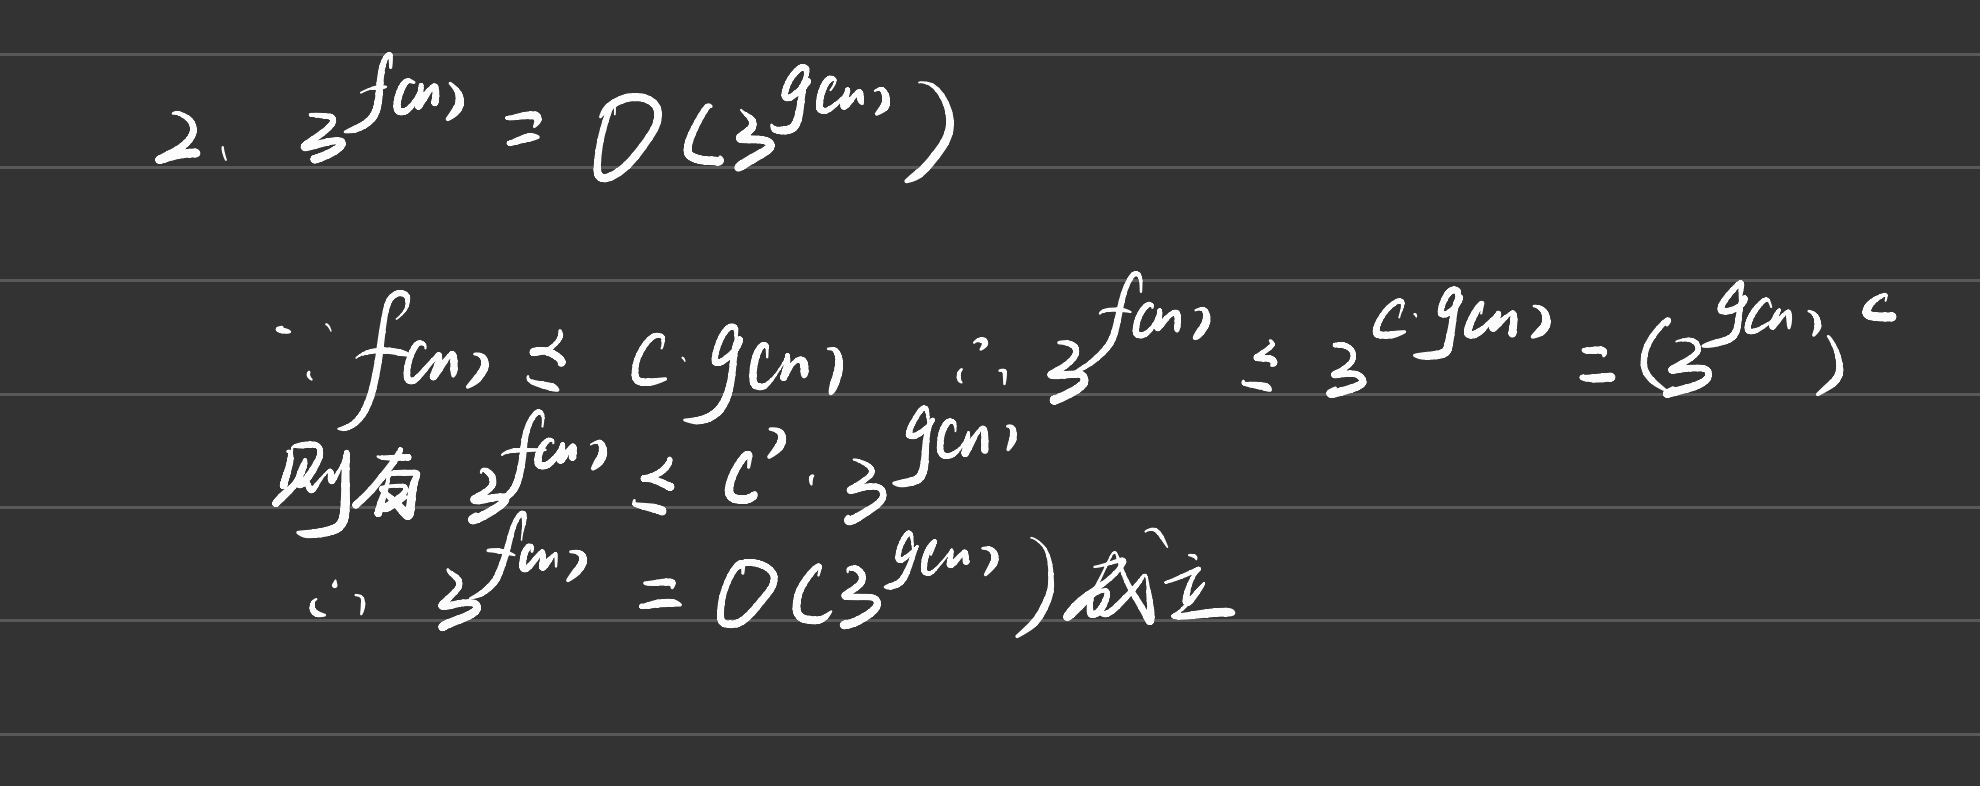 2. 3^f(n) = O(3^g(n))
∵ f(n) ≤ c·g(n) ∴ 3^f(n) ≤ 3^c·g(n) = (3^g(n))^c
则有 3^f(n) ≤ c'·3^g(n)
∴ 3^f(n) = O(3^g(n)) 成立